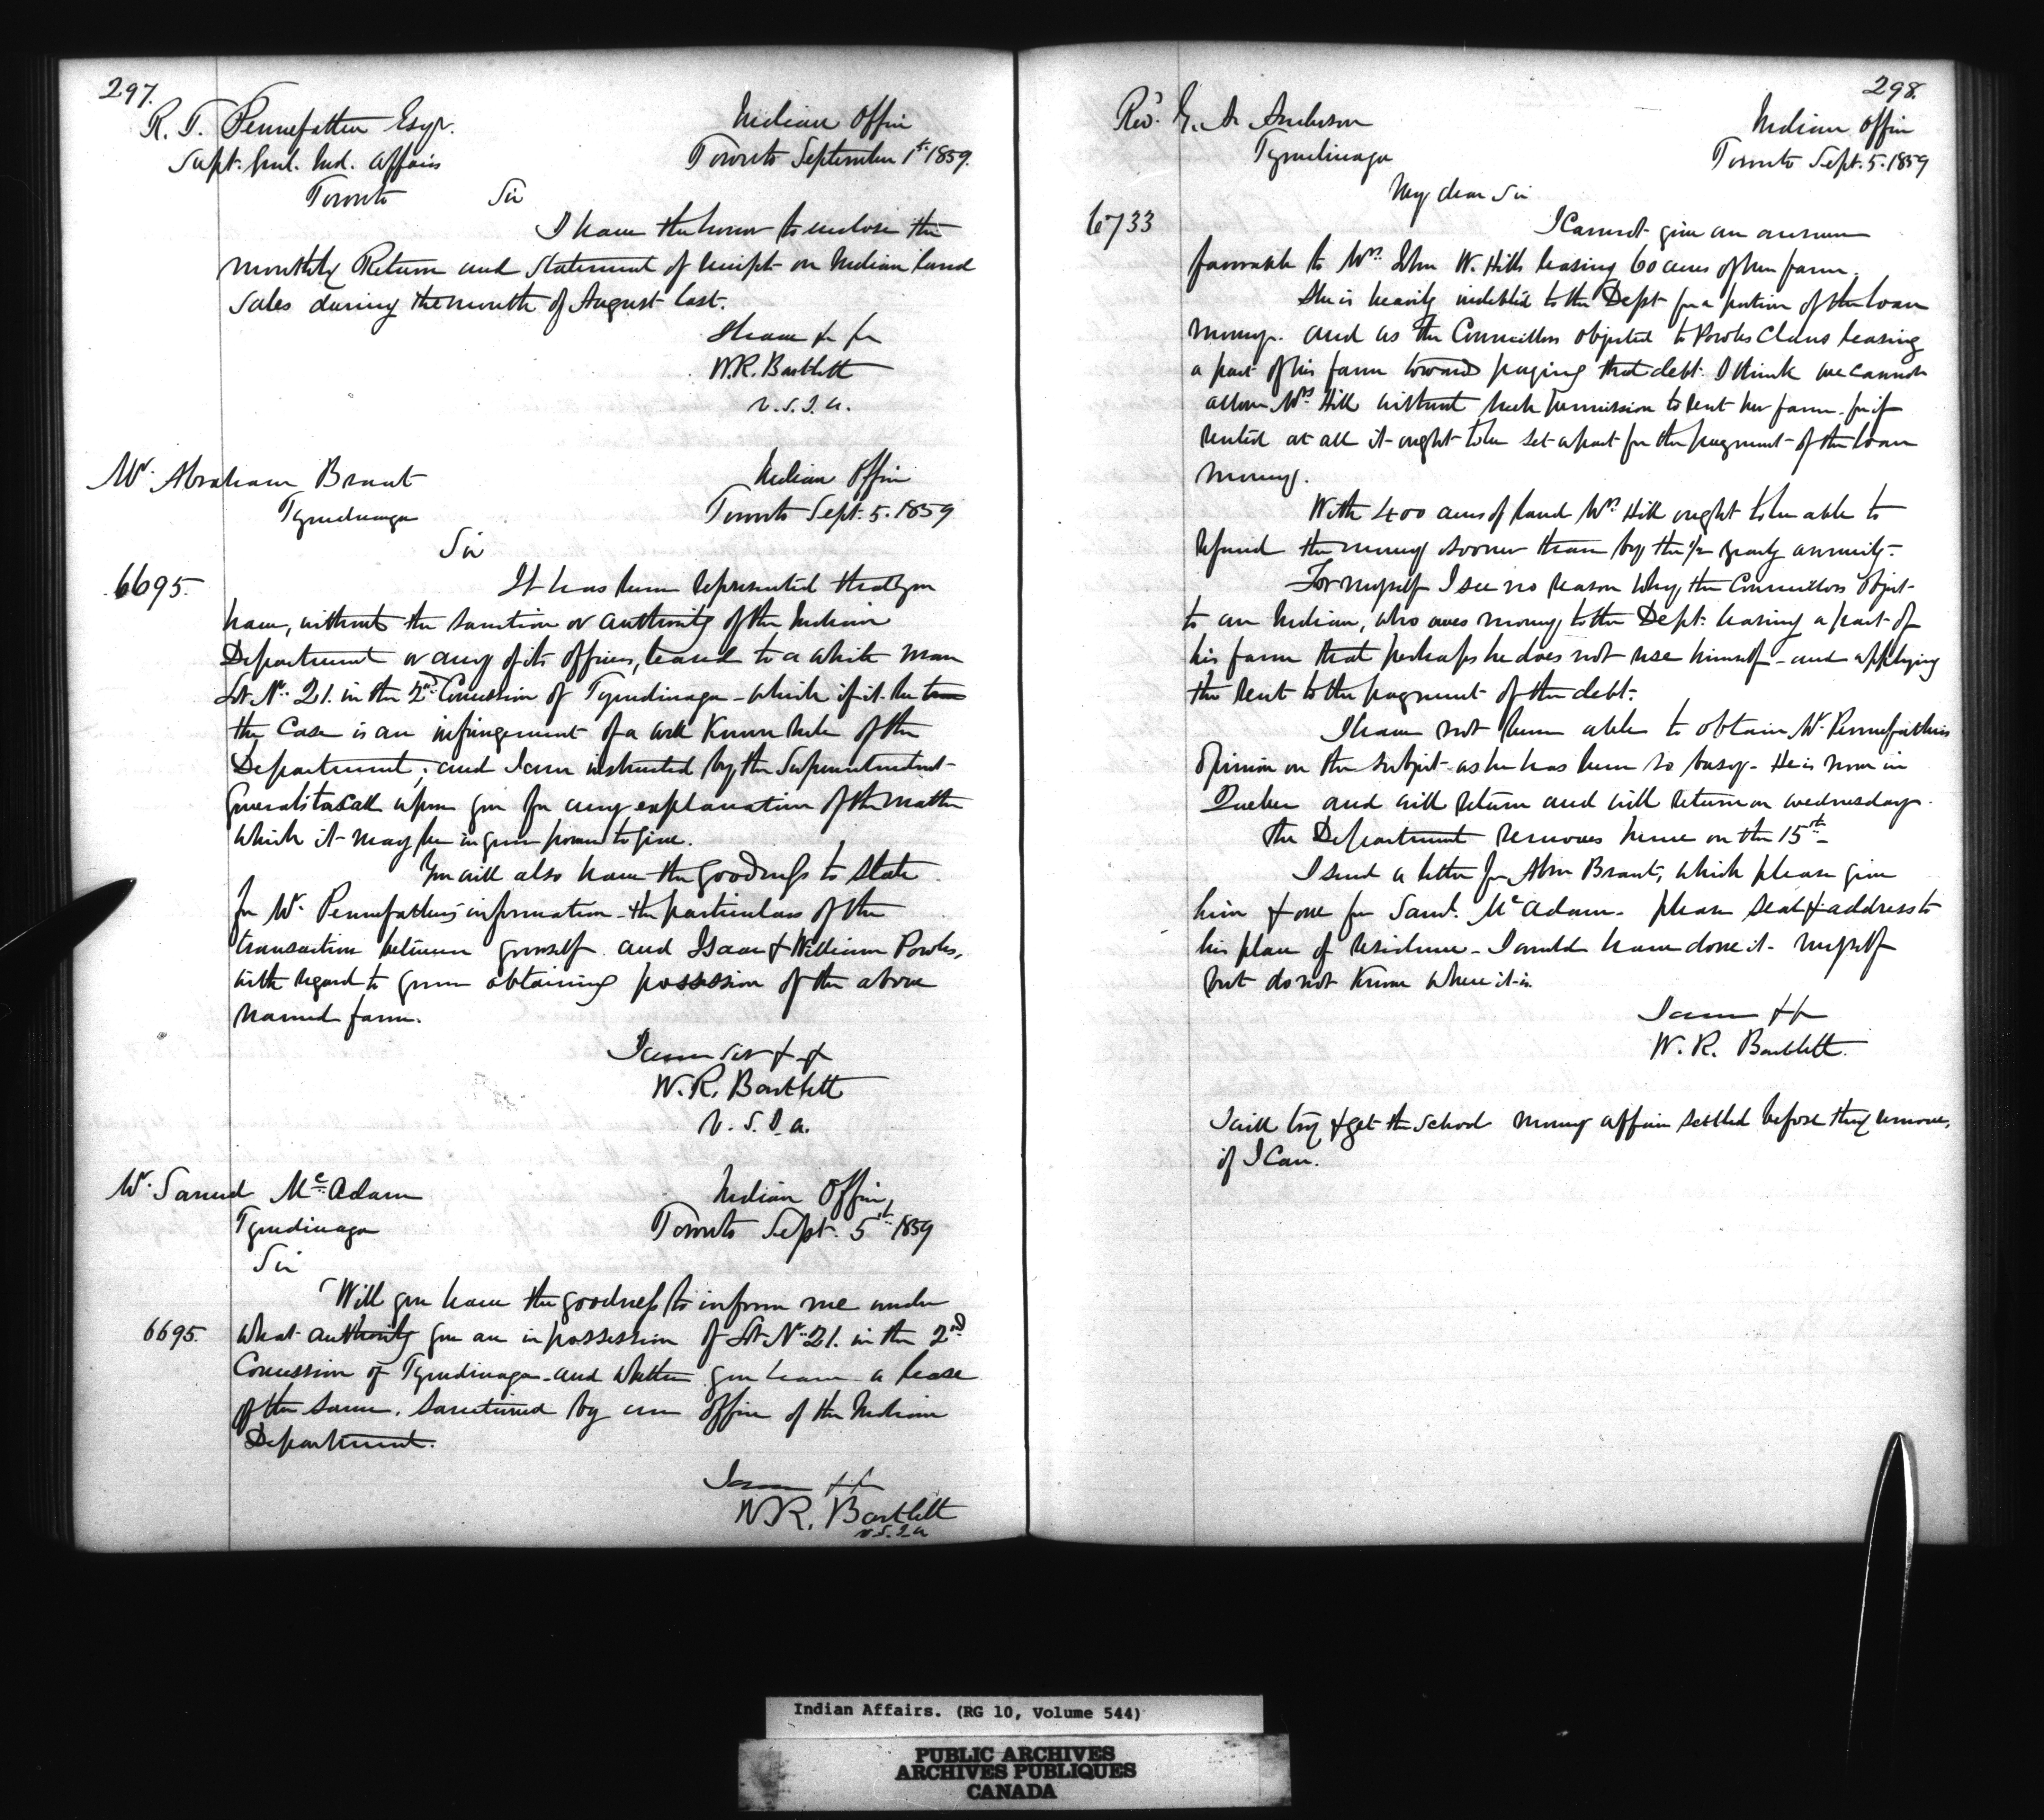 297.
R. T. Pennefather Esqr.
Supt. Genl. Ind. Affairs
Toronto
Indian Office
Toronto September 1st. 1859.
Sir
I have the honor to enclose the
monthly Return and Statement of receipts on Indian land
sales during the month of August last.
I have &c &c
W.R. Bartlett
V.S.I.A.
Mr. Abraham Brant
Tyendinaga
Indian Office
Toronto Sept. 5. 1859
Sir
6695.
It has been represented that you
have, without the sanction or authority of the Indian
Department or any of its officers, leased to a white man
Lot No. 21. in the 2nd Concession of Tyendinaga - which if it be
the case is an infringement of a well known rule of the
Department; and I am instructed by the Superintendent
General to call upon you for any explanation of the matter
which it may be in your power to give.
You will also have the goodness to state
for Mr. Pennefather's information - the particulars of the
transaction between yourself and Isaac & William Powles,
with regard to your obtaining possession of the above
named farm.
I am Sir &c &c
W.R. Bartlett
V.S.I.A.
Mr. Samuel McAdam
Tyendinaga
Indian Office,
Toronto Sept. 5th 1859
Sir
Will you have the goodness to inform me under
6695. what authority you are in possession of Lot No. 21. in the 2nd
Concession of Tyendinaga - and whether you have a lease
of the same, sanctioned by an officer of the Indian
Department.
I am &c
W.R. Bartlett
V.S.I.A
298.
Revd. G. A. Anderson
Tyendinaga
Indian Office
Toronto Sept. 5. 1859
My dear Sir
6733
I cannot give an answer
favorable to Mrs. John W. Hill's leasing 60 acres of her farm.
She is heavily indebted to the Dept for a portion of the loan
money. and as the Councillors objected to Powles Claus leasing
a part of his farm towards paying that debt. I think we cannot
allow Mrs Hill without such permission to rent her farm. for if
rented at all it ought to be set apart for the payment of the loan
money.
With 400 acres of land Mrs. Hill ought to be able to
refund the money sooner than by the 1/2 yearly annuity.
For myself I see no reason why the Councillors object
to an Indian, who owes money to the Dept. leasing a part of
his farm that perhaps he does not use himself - and applying
the rent to the payment of the debt.
I have not been able to obtain Mr. Pennefather's
opinion on the subject as he has been so busy - He is now in
Quebec and will return and will return on wednesday.
The Department removes hence on the 15th -
I send a letter for Abm Brant, which please give
him & one for Saml. McAdam - please seal & address to
his place of residence - I would have done it myself
but do not know where it is.
I am &c
W. R. Bartlett.
I will try & get the School money affair settled before they remove,
if I can.
Indian Affairs. (RG 10, Volume 544)
PUBLIC ARCHIVES
ARCHIVES PUBLIQUES
CANADA